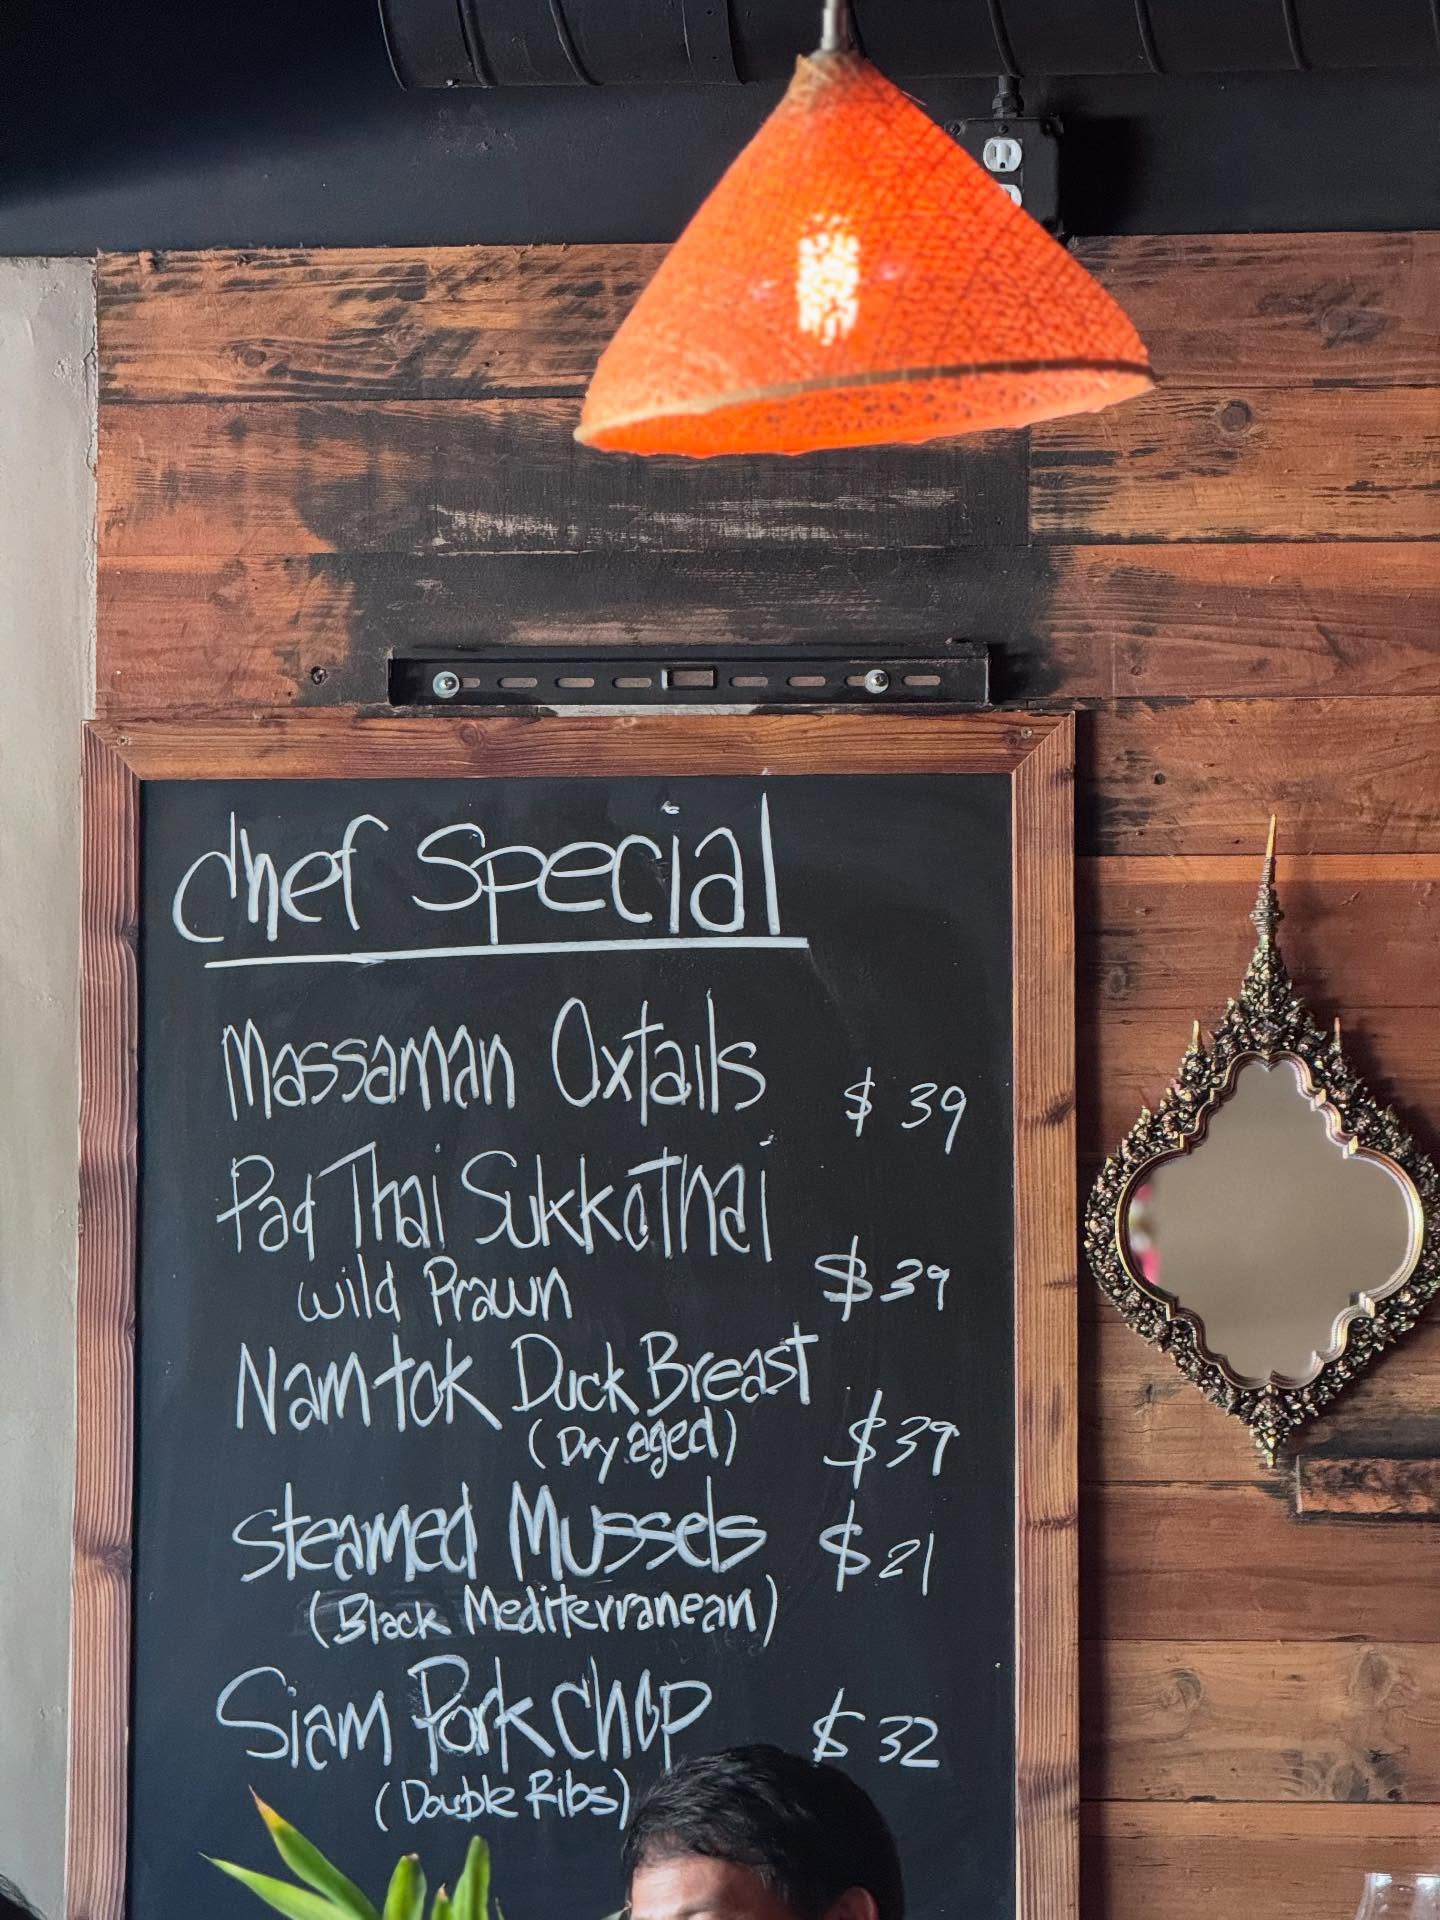 Chef Special
Massaman Oxtails $39
Pad Thai Sukkothai
Wild Prawn $39
Namtok Duck Breast
(Dry aged) $39
Steamed Mussels $21
(Black Mediterranean)
Siam Pork Chop $32
(Double Ribs)